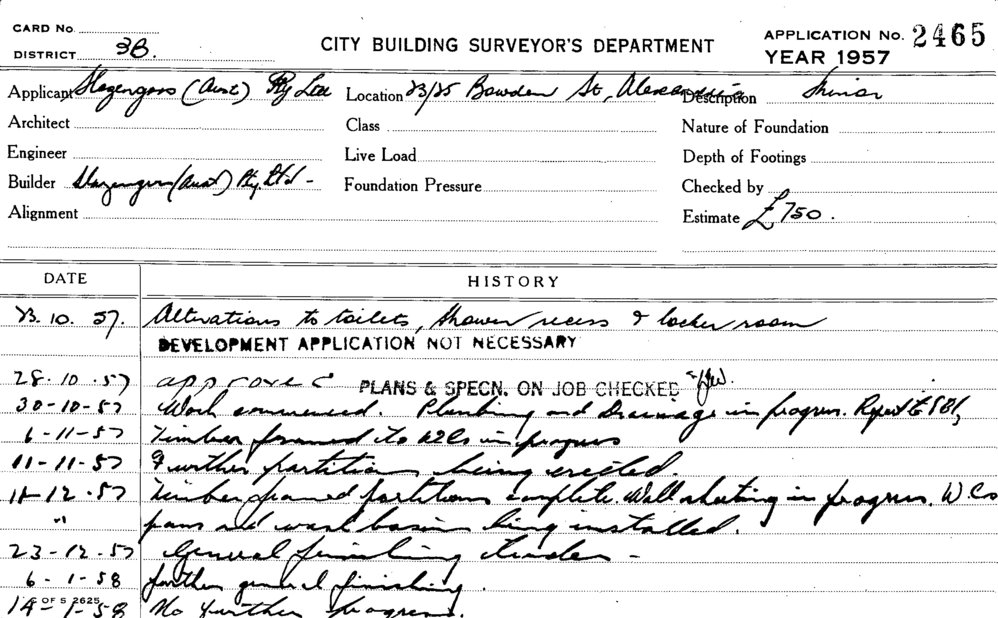 CARD No.
DISTRICT 3B.
CITY BUILDING SURVEYOR'S DEPARTMENT
APPLICATION No. 2465
YEAR 1957
Applicant Slazengers (Aust) Pty Ltd Location 23/25 Bowden St, Alexandria Description Minor
Architect Class Nature of Foundation
Engineer Live Load Depth of Footings
Builder Slazengers (Aust) Pty Ltd - Foundation Pressure Checked by
Alignment Estimate £750.
DATE HISTORY
23. 10. 57. Alterations to toilets, shower recess & locker room
DEVELOPMENT APPLICATION NOT NECESSARY
28-10-57 approved PLANS & SPECN. ON JOB CHECKED
30-10-57 Work commenced. Plumbing and Drainage in progress. Report to
6-11-57 Timber framed to WCs in progress
11-11-57 Further partitions being erected.
11-12-57 Timber framed partitions complete. Wall sheeting in progress. W.Cs
" pans and wash basins being installed.
23-12-57 General finishing trades -
6-1-58 further general finishing.
14-1-58 No further progress.
S OF S 2625